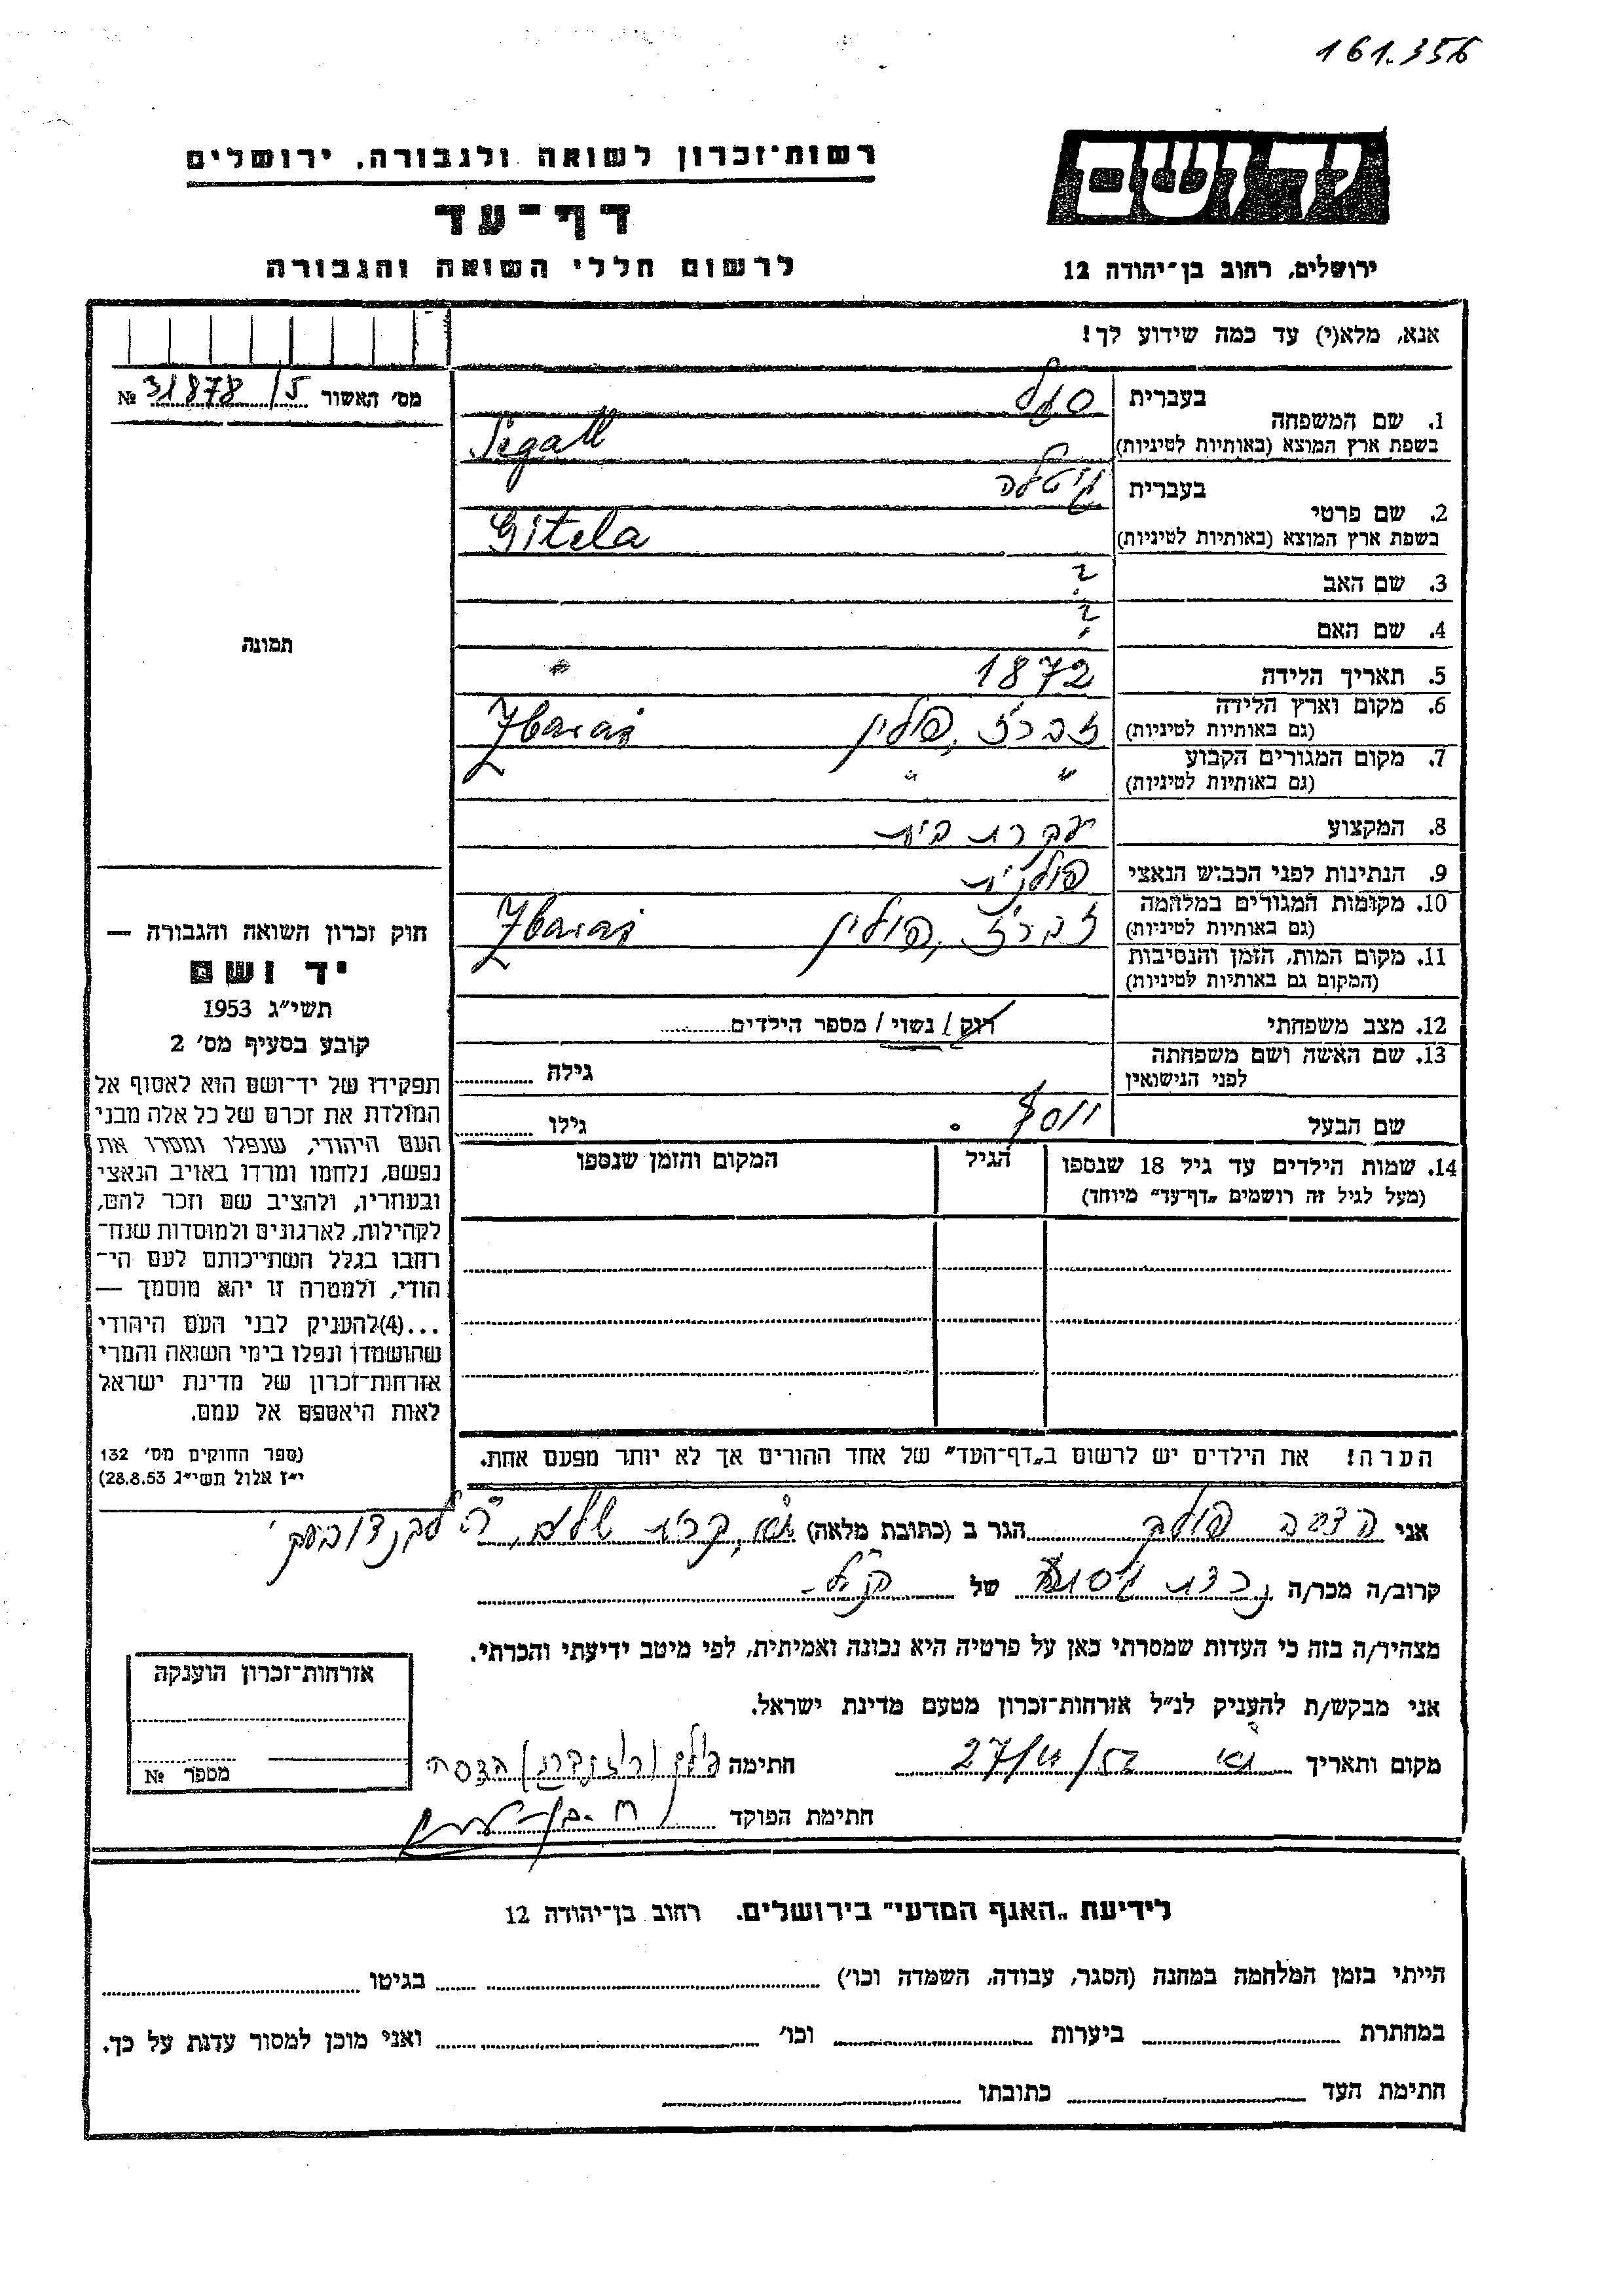 161.356
יד ושם
רשות־זכרון לשואה ולגבורה, ירושלים
דף־עד
לרשום חללי השואה והגבורה
ירושלים, רחוב בן־יהודה 12
אנא, מלא(י) עד כמה שידוע לך!
מס׳ האשור 31878/5 №
1. שם המשפחה
בעברית סגל
בשפת ארץ המוצא (באותיות לטיניות) Segall
2. שם פרטי
בעברית גיטלה
בשפת ארץ המוצא (באותיות לטיניות) Gitela
3. שם האב ?
4. שם האם ?
תמונה
5. תאריך הלידה 1872
6. מקום וארץ הלידה
(גם באותיות לטיניות) זברז׳, פולין Zbaraż
7. מקום המגורים הקבוע
(גם באותיות לטיניות) " "
8. המקצוע עקרת בית
9. הנתינות לפני הכבוש הנאצי פולנית
10. מקומות המגורים במלחמה
(גם באותיות לטיניות) זברז׳, פולין Zbaraż
11. מקום המות, הזמן והנסיבות
(המקום גם באותיות לטיניות)
12. מצב משפחתי רוק / נשוי / מספר הילדים
13. שם האשה ושם משפחתה
לפני הנישואין גילה
שם הבעל יוסף גילו
14. שמות הילדים עד גיל 18 שנספו
(מעל לגיל זה רושמים „דף־עד” מיוחד)
הגיל
המקום והזמן שנספו
חוק זכרון השואה והגבורה —
יד ושם
תשי״ג 1953
קובע בסעיף מס׳ 2
תפקידו של יד־ושם הוא לאסוף אל
המולדת את זכרם של כל אלה מבני
העם היהודי, שנפלו ומסרו את
נפשם, נלחמו ומרדו באויב הנאצי
ובעוזריו, ולהציב שם וזכר להם,
לקהילות, לארגונים ולמוסדות שנח־
רחבו בגלל השתייכותם לעם הי־
הודי, ולמטרה זו יהא מוסמך —
...(4)להעניק לבני העם היהודי
שהושמדו ונפלו בימי השואה והמרי
אזרחות־זכרון של מדינת ישראל
לאות היאספם אל עמם.
(ספר החוקים מס׳ 132
י״ז אלול תשי״ג 28.8.53)
הערה! את הילדים יש לרשום ב„דף־העד” של אחד ההורים אך לא יותר מפעם אחת.
אני הדסה פולק הגר ב (כתובת מלאה) קרית שלם,
קרוב/ה מכר/ה של
מצהיר/ה בזה כי העדות שמסרתי כאן על פרטיה היא נכונה ואמיתית, לפי מיטב ידיעתי והכרתי.
אני מבקש/ת להעניק לנ״ל אזרחות־זכרון מטעם מדינת ישראל.
מקום ותאריך חתימה הדסה
חתימת הפוקד
אזרחות־זכרון הוענקה
מספר №
לידיעת „האגף המדעי” בירושלים. רחוב בן־יהודה 12
הייתי בזמן המלחמה במחנה (הסגר, עבודה, השמדה וכו׳) בגיטו
במחתרת ביערות וכו׳ ואני מוכן למסור עדות על כך.
חתימת העד כתובתו